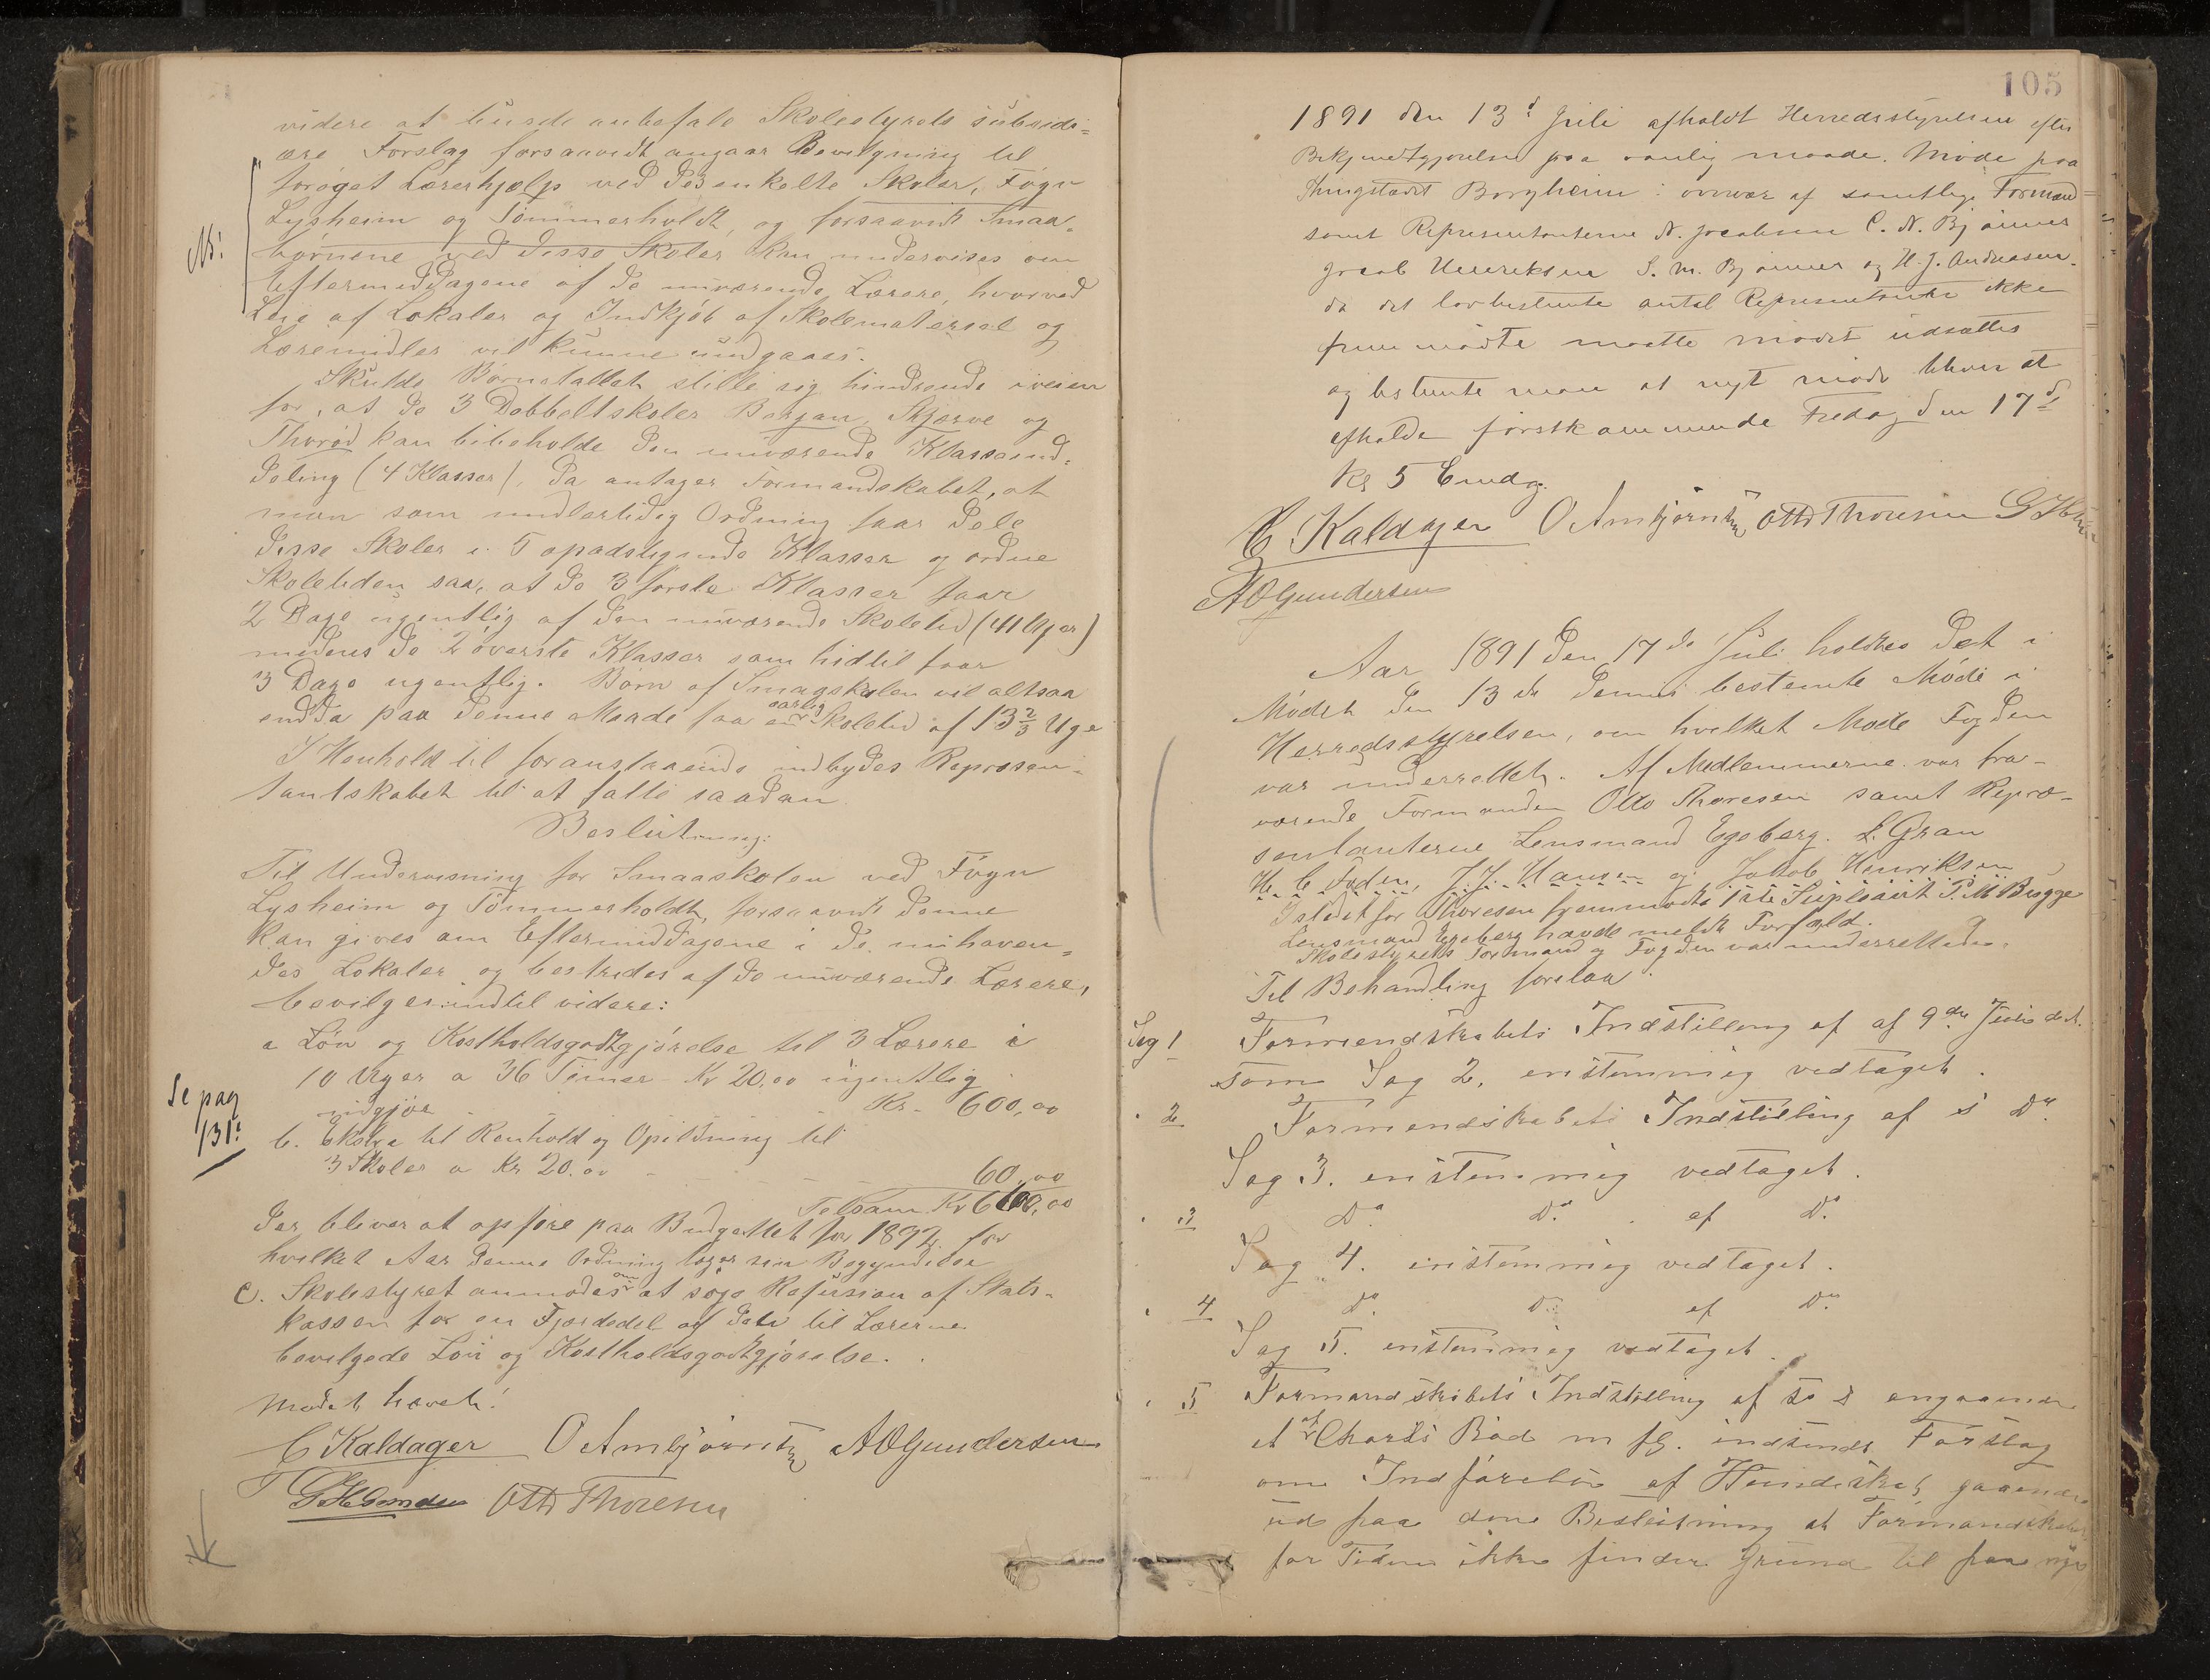 videre at burde anbefale Skolestyrets subsidi-
ære Forslag forsaavidt angaar Bevilgning til
forøget Lærerhjælp ved de enkelte Skoler, Føgn
Lysheim og Tömmerholdt, og forsaavidt Smaa-
børnene ved disse Skoler kan undervises om
Eftermiddagene af de nuværende Lærere, hvorved
Leie af Lokaler og Indkjøb af Skolemateriel og
Læremidler vil kunne undgaaes.
Skulde Børnetallet stille sig hindrende iveien
for, at de 3 Dobbeltskoler Berjan, Skjerve og
Thorød kan bibeholde den nuværende Klasseind-
deling (4 Klasser), da antager Formandskabet, at
man som midlertidig Ordning faar dele
disse Skoler i 5 opadstigende Klasser og ordne
Skoletiden saa, at de 3 første Klasser faar
2 Dage ugentlig af den nuværende Skoletid (41 Uger)
medens de 2 øverste Klasser som hidtil faar
3 Dage ugentlig. Børn af Smaaskolen vil altsaa
endda paa denne Maade faa en aarlig Skoletid af 13 2/3 Uge
I Henhold til foranstaaende indbydes Repræsen-
tantskabet til at fatte saadan
Beslutning:
Til Undervisning for Smaaskolen ved Föyn
Lysheim og Tömmerholdt, forsaavidt denne
kan gives om Eftermiddagene i de nuhaven-
des Lokaler og bestrides af de nuværende Lærere,
bevilges indtil videre:
a Løn og Kostholdsgodtgjørelse til 3 Lærere i
10 Uger a 36 Timer Kr 20,00 ugentlig
udgjør Kr. 600,00
Se pag
131!
b. til Renhold og Opildning til
3 Skoler a Kr 20.00 60,00
Tilsam. Kr 660,00
der bliver at opføre paa Budgettet for 1892 for
hvilket Aar denne Ordning tager sin Begyndelse
c. Skolestyret anmodes om at søge Refusion af Stats-
kassen for en Fjerdedel af den til Lærerne
bevilgede Løn og Kostholdsgodtgjørelse.
Mødet hævet!
C Kaldager O Arnbjørnsen AOGundersen
Otto Thoresen
105
1891 den 13d Juli afholdt Herredsstyrelsen efter
Bekjendtgjørelse paa vanlig maade. Møde paa
Thingstedet Borgheim i overvær af samtlige Formænd
samt Repræsentanterne N. Jacobsen C. N. Bjønnes
Jacob Henriksen S. M. Bjønnes og H. J. Andreasen.
da det lovbestemte antal Repræsentanter ikke
frem mødte maatte mødet udsættes
og bestemte man at nyt møde bliver at
afholde førstkommende Fredag den 17d
Kl 5 Emdg.
C Kaldager O Arnbjørnsen Otto Thoresen
AOGundersen
Aar 1891 den 17de Juli holdtes det i
Mødet den 13de dennes bestemte Møde i
Herredsstyrelsen, om hvilket Møde Fogden
var underrettet. Af Medlemmerne var fra-
værende Formanden Otto Thoresen samt Repræ-
sentanterne Lensmand Egeberg. L. Gran
H. C. Foden, J. J. Hansen og Jakob Henriksen,
Istedet for Thoresen fremmødte 1ste Supleant P. M Bugge
Lensmand Egeberg havde meldt Forfald.
Skolestyrets Formand og Fogden var underrettede.
Til Behandling forelaa
Sag 1 Formandskabets Indstilling af af 9de Juli d.A.
som Sag 2. enstemmig vedtaget.
" 2 Formandskabets Indstilling af s Do.
Sag 3. enstemmig vedtaget.
" 3 Do. Do. af Do.
Sag 4. enstemmig vedtaget.
" 4 Do. Do. af Do.
Sag 5. enstemmig vedtaget.
" 5 Formandskabets Indstilling af angaaende
et af Charls Bød m fl. indsendt Forslag
om Indførelse af Hundeskat gaaende
ud paa den Beslutning at Formandskabet
for Tiden ikke finder Grund til paa nye